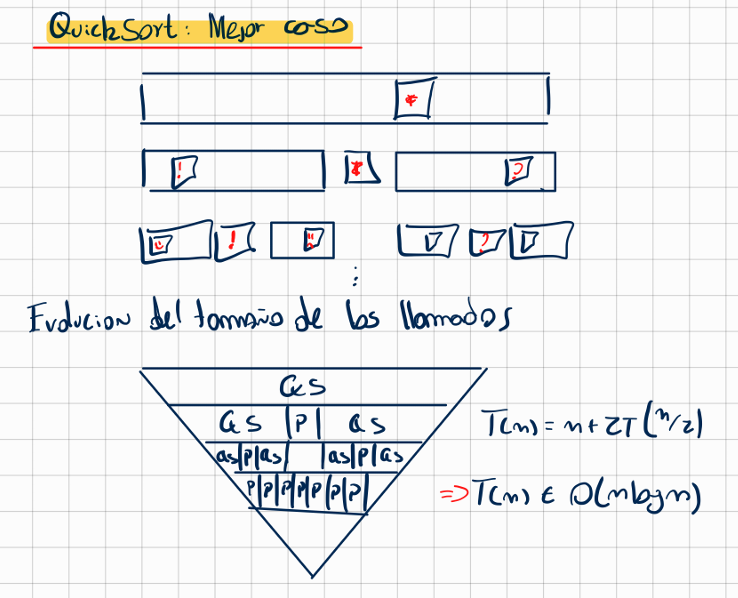 QuickSort: Mejor caso
*
! * ?
! ?
⋮
Evolucion del tamaño de los llamados
QS
QS |P| QS
QS|P|QS| |QS|P|QS
P|P|P|P|P|P|P|
T(n) = n + 2T(n/2)
⇒ T(n) ∈ O(n log n)